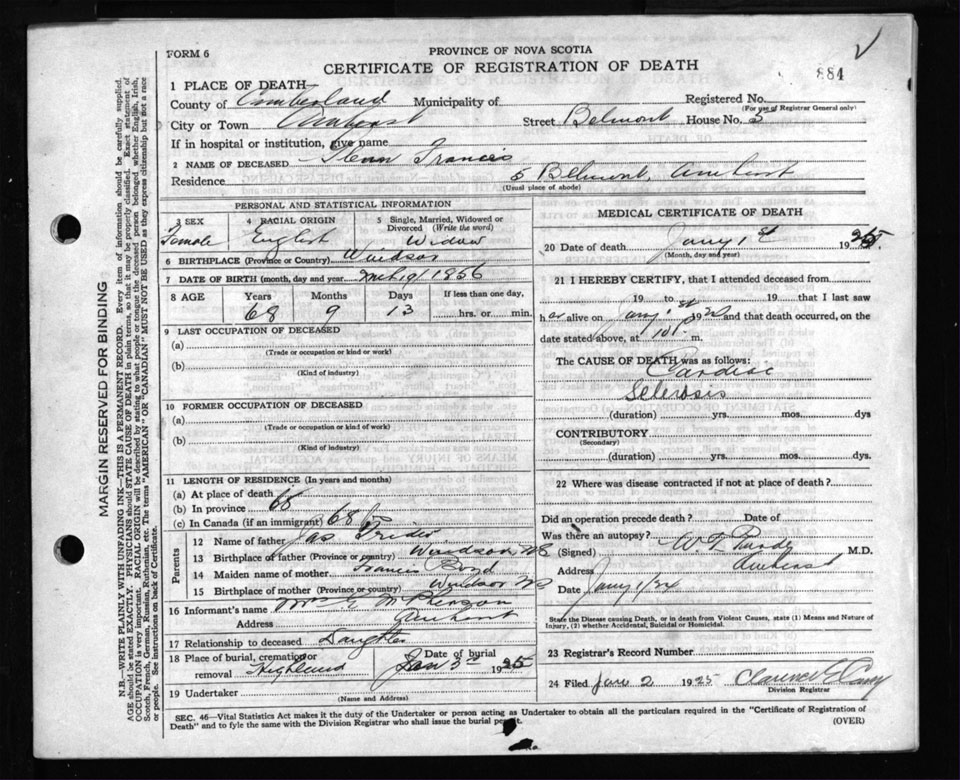 FORM 6
PROVINCE OF NOVA SCOTIA
CERTIFICATE OF REGISTRATION OF DEATH
884
1 PLACE OF DEATH
County of Cumberland Municipality of Registered No.
(For use of Registrar General only)
City or Town Amherst Street Belmont House No. 5
If in hospital or institution, give name
2 NAME OF DECEASED Francis
Residence 5 Belmont, Amherst
(Usual place of abode)
PERSONAL AND STATISTICAL INFORMATION
3 SEX 4 RACIAL ORIGIN 5 Single, Married, Widowed or Divorced (Write the word)
Female English Widow
6 BIRTHPLACE (Province or Country) Windsor
7 DATE OF BIRTH (month, day and year) 1856
8 AGE Years Months Days If less than one day,
68 9 13 hrs. or min.
9 LAST OCCUPATION OF DECEASED
(a)
(Trade or occupation or kind or work)
(b)
(Kind of industry)
10 FORMER OCCUPATION OF DECEASED
(a)
(Trade or occupation or kind of work)
(b)
(Kind of industry)
11 LENGTH OF RESIDENCE (In years and months)
(a) At place of death
(b) In province 68
(c) In Canada (if an immigrant) 68
Parents
12 Name of father Jas
13 Birthplace of father (Province or country) Windsor NS
14 Maiden name of mother Frances Boyd
15 Birthplace of mother (Province or country) Windsor NS
16 Informant's name Mrs G McPherson
Address Amherst
17 Relationship to deceased Daughter
18 Place of burial, cremation or removal Highland Date of burial Jan 3rd 1925
19 Undertaker
(Name and Address)
MEDICAL CERTIFICATE OF DEATH
20 Date of death Jany 1st 1925.
(Month, day and year)
21 I HEREBY CERTIFY, that I attended deceased from
19 to 19 that I last saw
her alive on Jany 1st 19 and that death occurred, on
date stated above, at m.
The CAUSE OF DEATH was as follows:
Cardiac
Sclerosis
(duration) yrs. mos. dys
CONTRIBUTORY
(Secondary)
(duration) yrs. mos. dys
22 Where was disease contracted if not at place of death?
Did an operation precede death? Date of
Was there an autopsy?
(Signed) W. T. Purdy M.D.
Address Amherst
Date Jany 1/24
State the Disease causing Death, or in death from Violent Causes, state (1) Means and Nature of Injury, (2) whether Accidental, Suicidal or Homicidal.
23 Registrar's Record Number
24 Filed Jan 2 1925 Clarence
Division Registrar
SEC. 46—Vital Statistics Act makes it the duty of the Undertaker or person acting as Undertaker to obtain all the particulars required in the "Certificate of Registration of
Death" and to fyle the same with the Division Registrar who shall issue the burial permit. (OVER)
MARGIN RESERVED FOR BINDING
N.B.—WRITE PLAINLY WITH UNFADING INK—THIS IS A PERMANENT RECORD. Every item of information should be carefully supplied.
AGE should be stated EXACTLY. PHYSICIANS should STATE CAUSE OF DEATH in plain terms, so that it may be properly classified. Exact statement of
OCCUPATION is very important. RACIAL ORIGIN will be described by stating to what people or tongue the deceased person belonged, whether English, Irish,
Scotch, French, German, Russian, Ruthenian, etc. The terms "AMERICAN" OR "CANADIAN" MUST NOT BE USED as they express citizenship but not a race
or people. See instructions on back of Certificate.